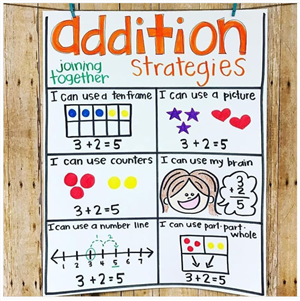 addition
joining
together
strategies
I can use a ten frame
3 + 2 = 5
I can use a picture
3 + 2 = 5
I can use counters
3 + 2 = 5
I can use my brain
3
+ 2
5
I can use a number line
1 2 3 4 5 6 7
3 + 2 = 5
I can use part-part-
whole
3 + 2 = 5